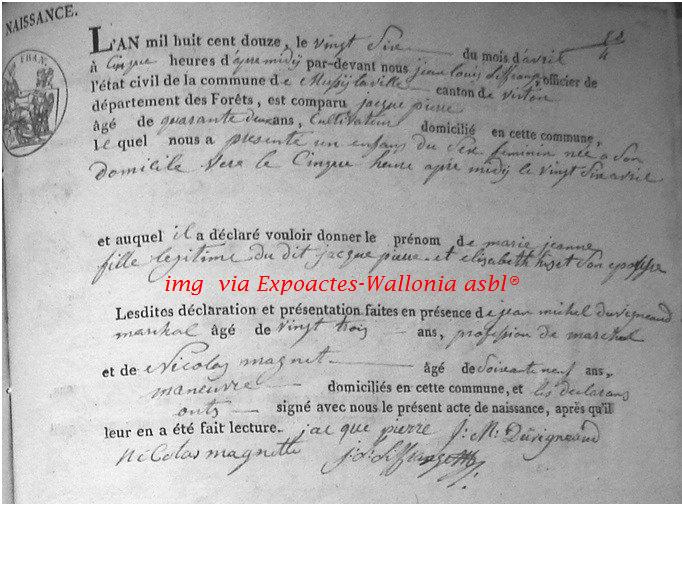 NAISSANCE.
L'AN mil huit cent douze, le vingt Six du mois d'avril
à Cinque heures d'apre midÿ par-devant nous jean louis officier de
l'état civil de la commune de Mussÿ la ville canton de virton
département des Forêts, est comparu jacque pierre
âgé de quarante deux ans, Cultivateur domicilié en cette commune,
le quel nous a presente un enfans du Sex feminin née a Son
domicile vers le Cinque heure apre midÿ le vingt Six avril
et auquel il a déclaré vouloir donner le prénom de marie jeanne
fille legitime du dit jacque pierre et elisabeth Son
img via Expoactes-Wallonia asbl®
Lesdites déclaration et présentation faites en présence de jean michel duvigneaud
marchal âgé de vingt trois ans, profession de marchal
et de Nicolas magnet âgé de Soixante neuf ans,
maneuvre domiciliés en cette commune, et les declarans
onts signé avec nous le présent acte de naissance, après qu'il
leur en a été fait lecture. jacque pierre J: M: Duvigneaud
nicolas magnette